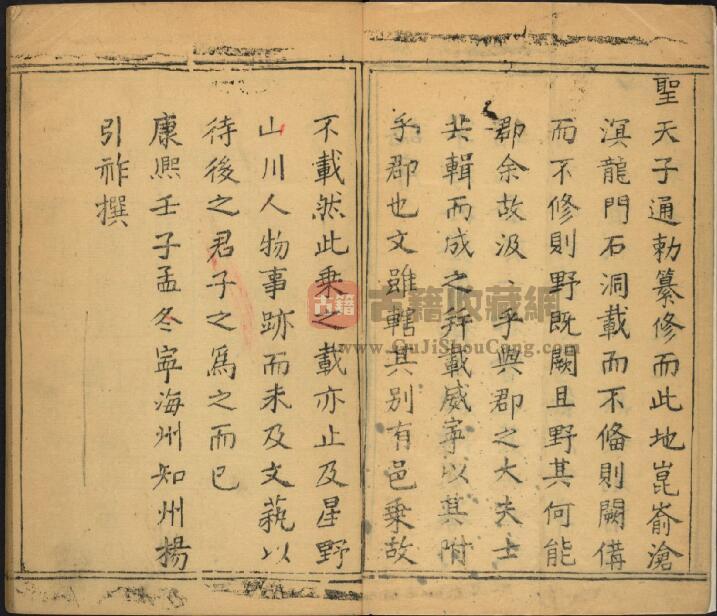 聖天子通勅纂修而此地崑嵛滄
溟龍門石洞載而不俻則闕備
而不修則野既闕且野其何能
郡余故汲〻乎與郡之大夫士
共輯而成之并載威寧以其附
乎郡也文雖轄其别有邑乗故
不載然此乗之載亦止及星野
山川人物事跡而未及文蓺以
待後之君子之爲之而已
康熙壬子孟冬寧海州知州楊
引祚撰
古籍
古籍收藏網
www.GuJiShouCang.com